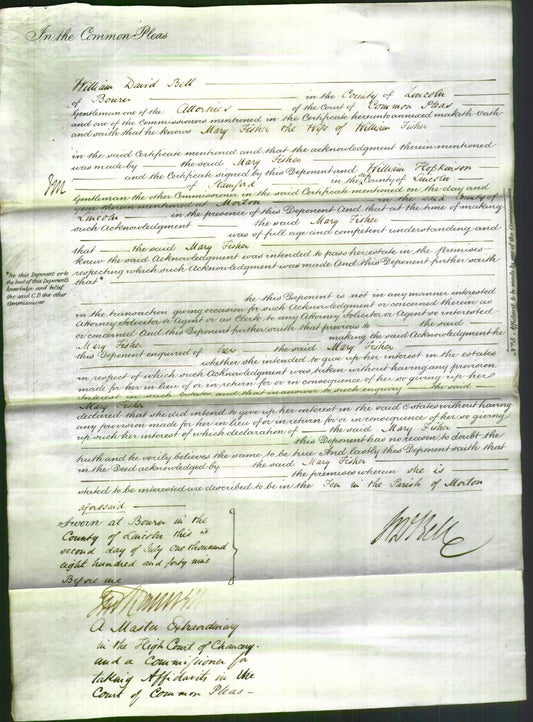 In the Common Pleas
William David Bell
of Bourn in the County of Lincoln
Gentleman one of the Attornies of the Court of Common Pleas
and one of the Commissioners mentioned in the Certificate hereunto annexed maketh Oath
and saith that he knows Mary Fisher the Wife of William Fisher
in the said Certificate mentioned and that the acknowledgment therein mentioned
was made by the said Mary Fisher
and the Certificate signed by this Deponent and William Hopkinson
of Stamford in the said County of Lincoln
Gentleman the other Commissioner in the said Certificate mentioned on the day and
at Morton in the said County of
Lincoln in the presence of this Deponent And that at the time of making
such Acknowledgment the said Mary Fisher
was of full age and competent understanding and
that the said Mary Fisher
knew the said Acknowledgment was intended to pass her estate in the premises
respecting which such Acknowledgment was made And this Deponent further saith
that*
* For this Deponent or to
the best of this Deponent's
knowledge and belief
the said C.D. the other
Commissioner
he this Deponent is not in any manner interested
in the transaction giving occasion for such Acknowledgment or concerned therein as
Attorney Solicitor or Agent or as Clerk to any Attorney Solicitor or Agent so interested
or concerned And this Deponent further saith that previous to the said
Mary Fisher making the said Acknowledgment he
this Deponent enquired of her the said Mary Fisher
whether she intended to give up her interest in the estates
in respect of which such Acknowledgment was taken without having any provision
made for her in lieu of or in return for or in consequence of her so giving up her
Interest in such Estates and that in answer to such enquiry the said
Mary Fisher
declared that she did intend to give up her interest in the said Estates without having
any provision made for her in lieu of or in return for or in consequence of her so giving
up such her interest of which declaration of the said Mary Fisher
this Deponent has no reason to doubt the
truth and he verily believes the same to be true And lastly this Deponent saith that
in the Deed acknowledged by the said Mary Fisher
the premises wherein she is
stated to be interested are described to be in the Fen in the Parish of Morton
aforesaid
Sworn at Bourn in the
County of Lincoln this
second day of July one thousand
eight hundred and forty nine
Before me
Wm D Bell
A Master Extraordinary
in the High Court of Chancery
and a Commissioner for
taking Affidavits in the
Court of Common Pleas
Affidavit to be made by one of the Commissioners